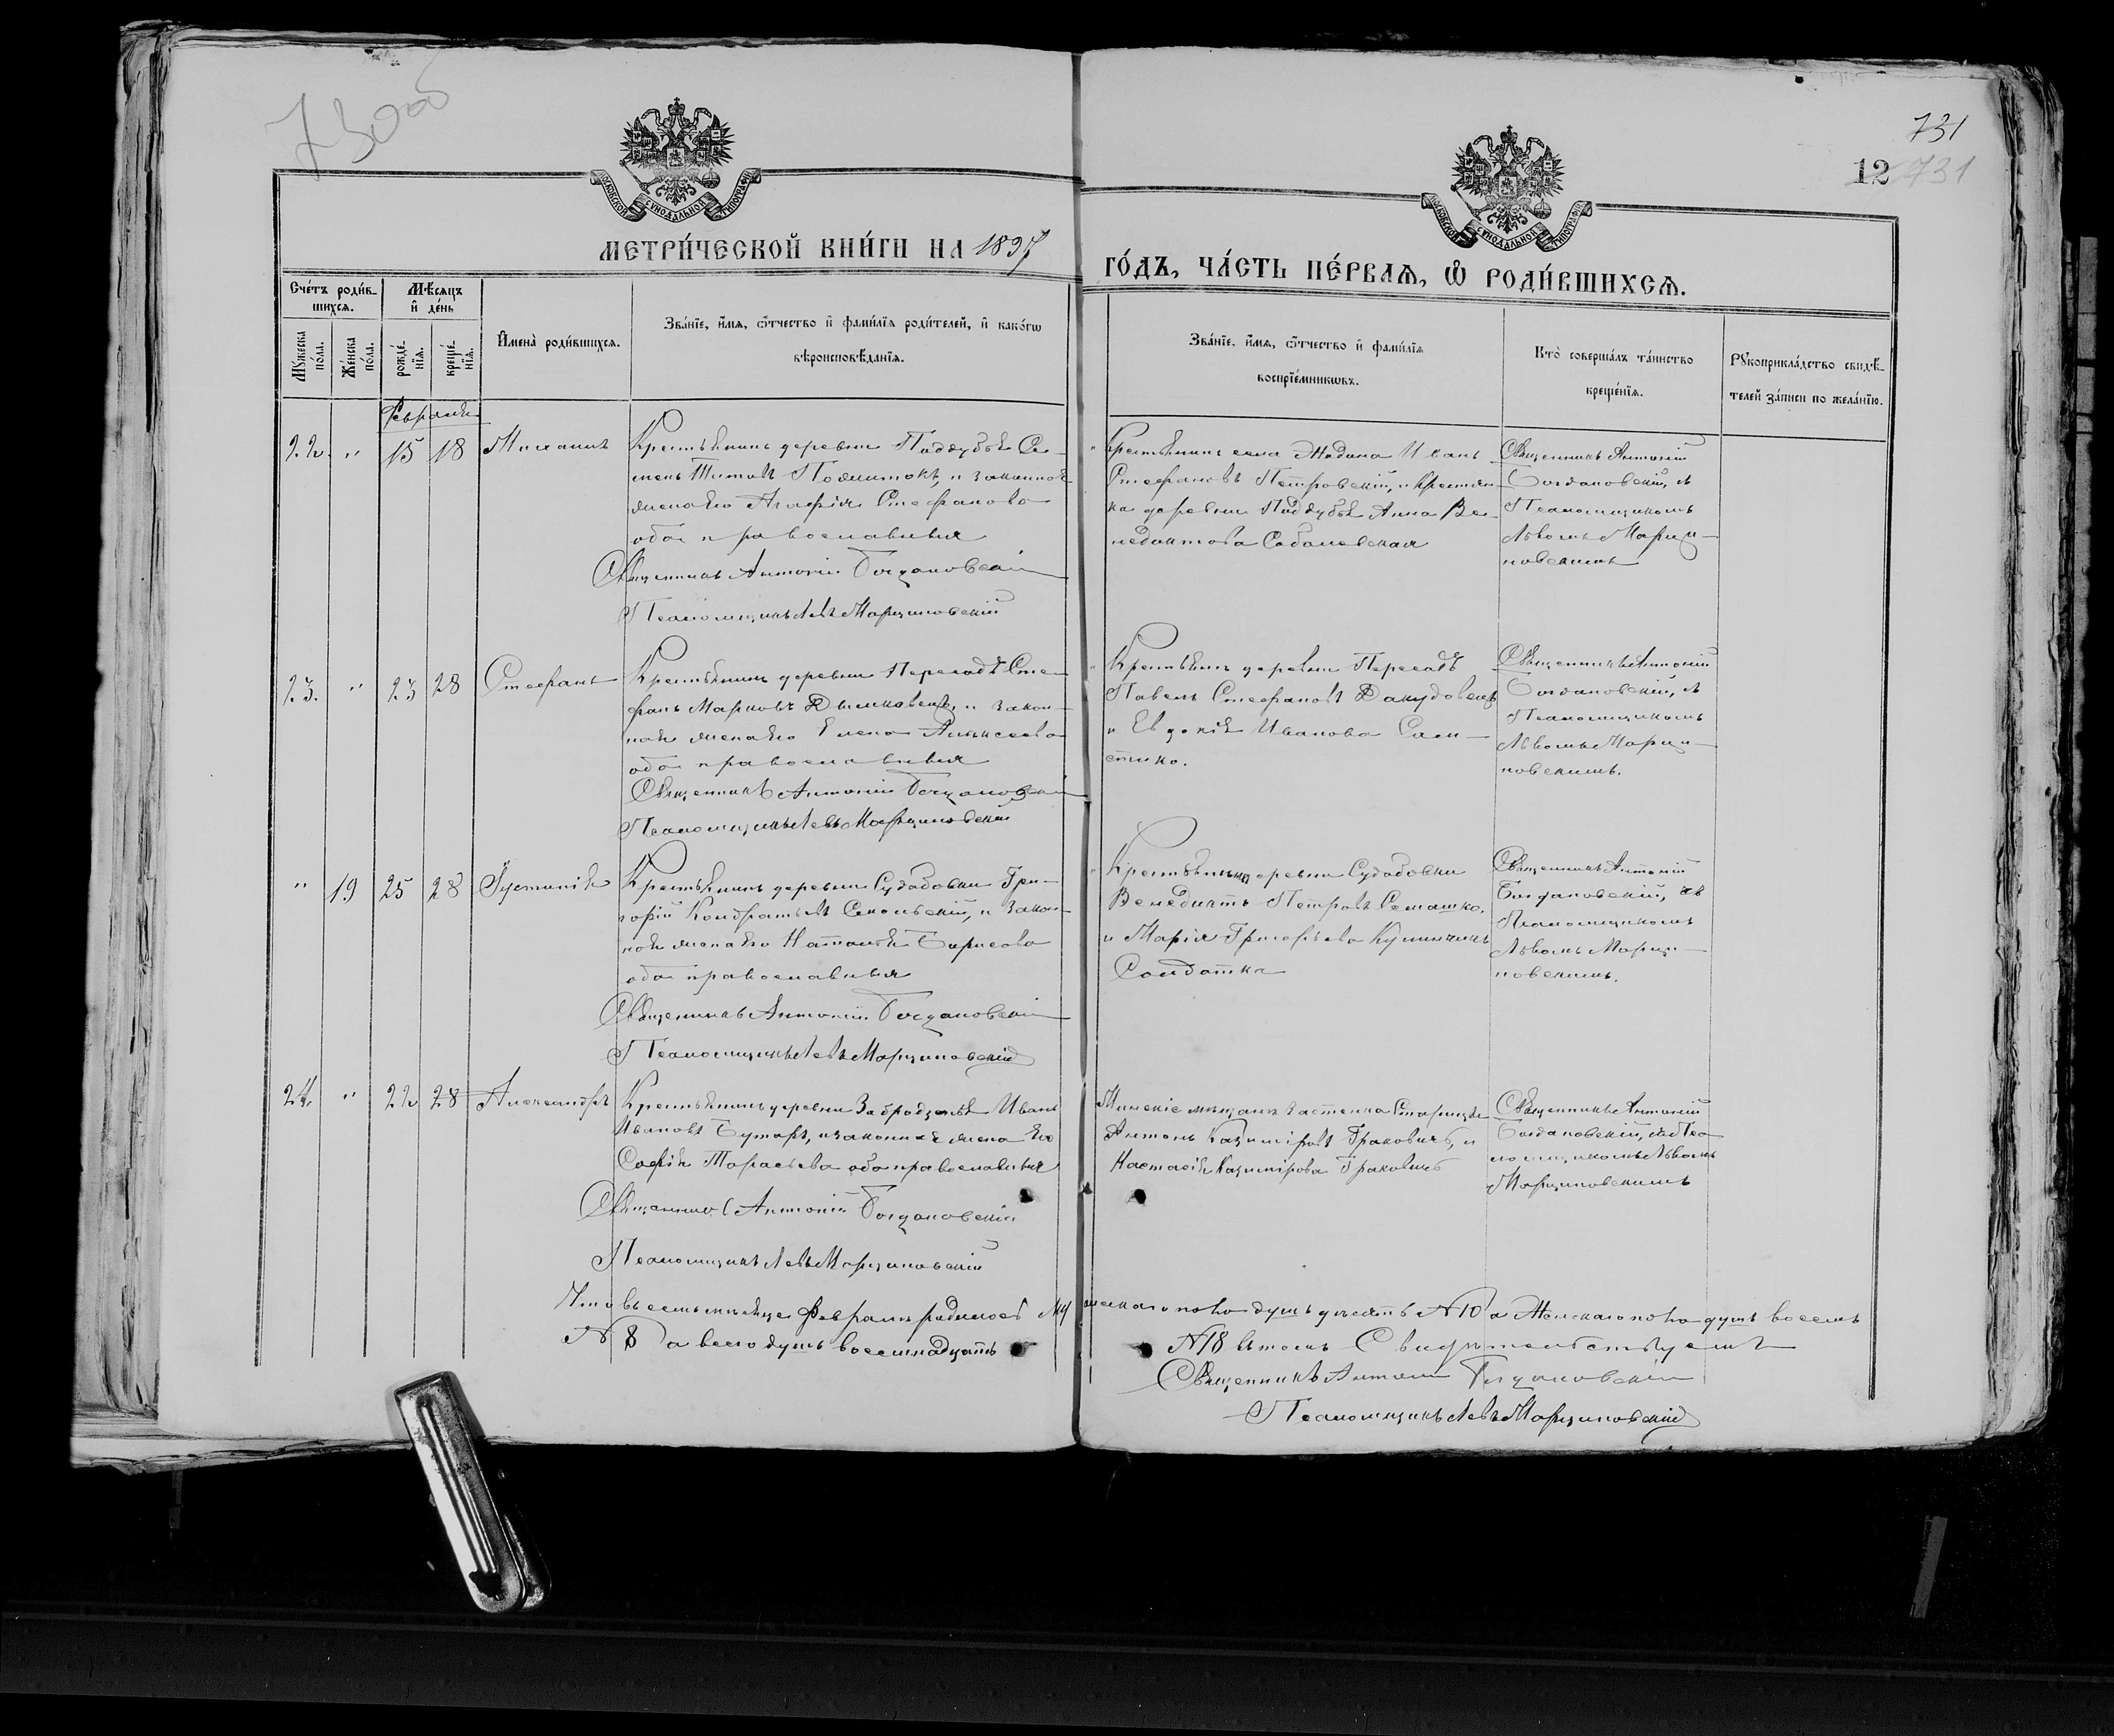 730об
731
12 731
МОСКОВСКОЙ СУНОДАЛЬНОЙ ТИПОГРАФІИ
МОСКОВСКОЙ СУНОДАЛЬНОЙ ТИПОГРАФІИ
МЕТРИ́ЧЕСКОЙ КНИ́ГИ НА 1897
ГО́ДЪ, ЧА́СТЬ ПЕ́РВАѦ, Ѿ РОДИ́ВШИХСѦ.
Сче́тъ роди́в-
шихся.
Мѣ́сяцъ
и҆ де́нь
Му́жеска
по́ла.
Же́нска
по́ла.
рожде́-
нія.
креще́-
нія.
И҆мена̀ роди́вшихся.
Зва́ніе, и҆́мя, ѻ҆́тчество и҆ фами́лїя роди́телей, и҆ како́гѡ
вѣроисповѣ́данїя.
Зва́ніе, и҆́мя, ѻ҆́тчество и҆ фами́лїя
воспрїе́мникѡвъ.
Кто̀ соверша́лъ та́инство
креще́нїя.
Рукоприкла́дство свидѣ́-
телей за́писи по жела́нїю.
Февраль
22. " 15 18 Михаилъ
Крестьянинъ деревни Поддубья Се-
менъ Титовъ и законная
жена его Агафія Стефанова
оба православныя
Священникъ Антоній Богдановскій
Псаломщикъ Левъ Марциновскій
" Крестьянинъ села Жодина Иванъ
Стефановъ Петровскій, и крестьян-
ка деревни Поддубья Анна Ве-
недиктова Соболевская
Священникъ Антоній
Богдановскій, съ
Псаломщикомъ
Львомъ Марци-
новскимъ
23. " 23 28 Стефанъ
Крестьянинъ деревни Пересадъ Сте-
фанъ Марковъ и закон-
ная жена его Елена Алексеева
оба православныя
Священникъ Антоній Богдановскій
Псаломщикъ Левъ Марциновскій
" Крестьянинъ деревни Пересадъ
Павелъ Стефановъ
и Евдокія Иванова
Священникъ Антоній
Богдановскій, съ
Псаломщикомъ
Львомъ Марци-
новскимъ.
" 19 25 28 Іустинія
Крестьянинъ деревни Судобовки Гри-
горій Кондратьевъ и закон-
ная жена его Наталія Борисова
оба православныя
Священникъ Антоній Богдановскій
Псаломщикъ Левъ Марциновскій
" Крестьянинъ деревни Судобовки
Венедиктъ Петровъ Семашко,
и Марія Григорьева
Солдатка
Священникъ Антоній
Богдановскій, съ
Псаломщикомъ
Львомъ Марци-
новскимъ.
24. " 22 28 Александръ
Крестьянинъ деревни Забродзья Иванъ
Ивановъ и законная жена его
Софія Тарасьева оба православныя
Священникъ Антоній Богдановскій
Псаломщикъ Левъ Марциновскій
Минскіе мѣщане застенка
Антонъ Казиміровъ Граковичъ, и
Настасія Казимірова Граковичъ
Священникъ Антоній
Богдановскій, съ Пса-
ломщикомъ Львомъ
Марциновскимъ
Что въ семъ мѣсяце Февралѣ родилось му
жескаго пола душъ десять №10 а Женскаго пола душъ восемь
№ 8 а всего душъ восемнадцать
№18 въ томъ Свидѣтельствуемъ
Священникъ Антоній Богдановскій
Псаломщикъ Левъ Марциновскій